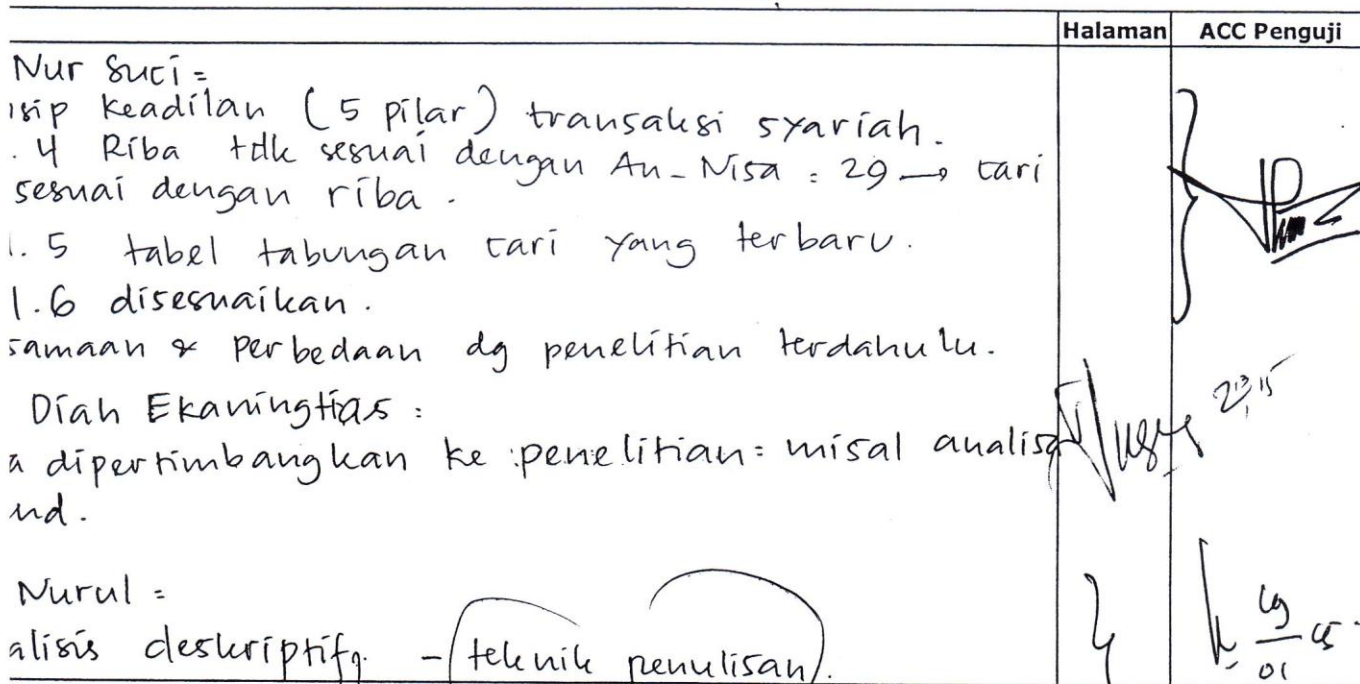 Halaman ACC Penguji
Nur Suci =
isip keadilan (5 pilar) transaksi syariah.
. 4 Riba tdk sesuai dengan An-Nisa : 29 → cari
sesuai dengan riba.
1. 5 tabel tabungan cari yang terbaru.
1.6 disesuaikan.
samaan & perbedaan dg penelitian terdahulu.
Diah Ekaningtias :
a dipertimbangkan ke penelitian = misal analisa
nd.
Nurul =
alisis deskriptif. - teknik penulisan.